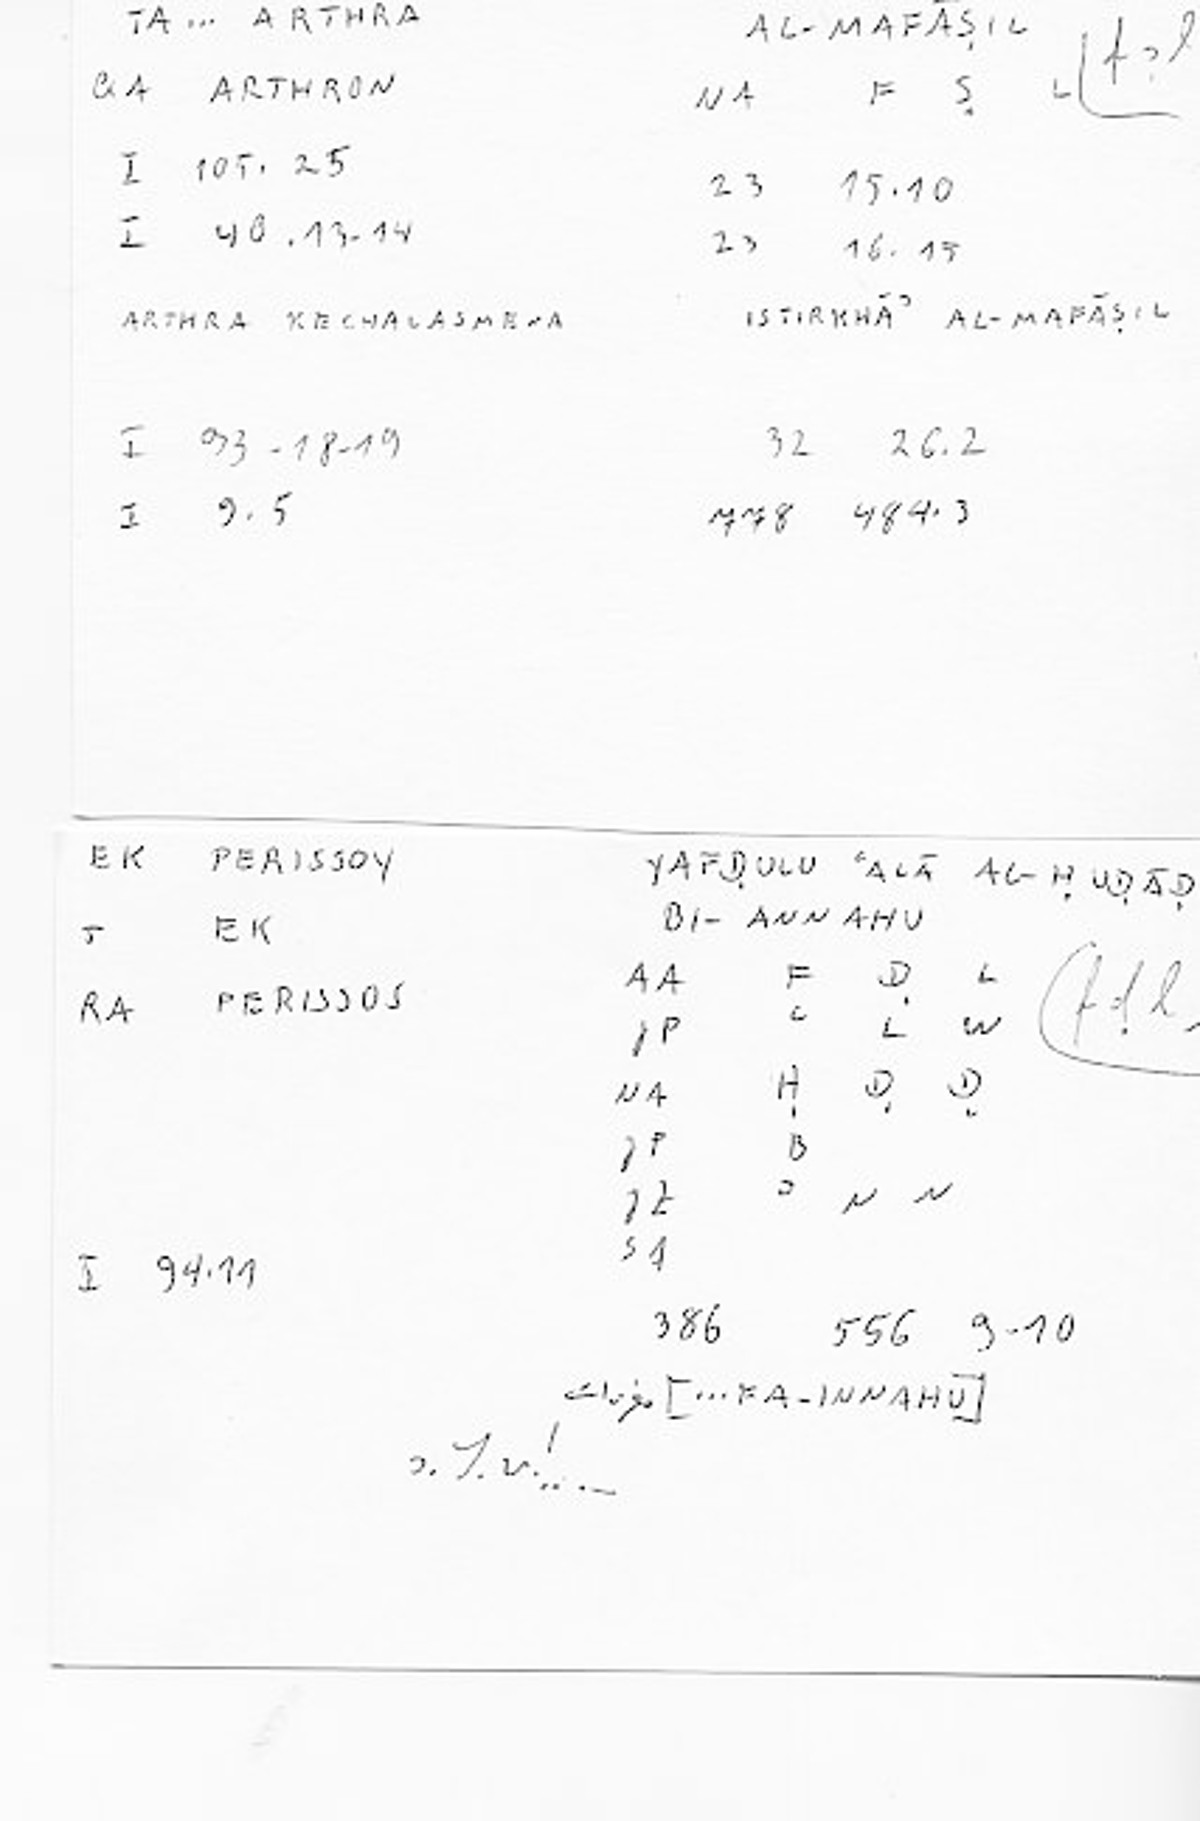 TA... ARTHRA AL-MAFĀṢIL
GA ARTHRON NA F Ṣ L
I 105.25 23 15.10
I 40.13-14 23 16.15
ARTHRA KECHALASMENA ISTIRKHĀʾ AL-MAFĀṢIL
I 93-18-19 32 26.2
I 9.5 778 484.3
EK PERISSOY YAFḌULU ʿALĀ AL-ḤUḌĀḌ
BI-ANNAHU
J EK AA F Ḍ L
RA PERISSOS JP ʿ L W
NA Ḥ Ḍ Ḍ
JP B
JZ ʾ N N
I 94.11 S1
386 556 9-10
[...FA-INNAHU]